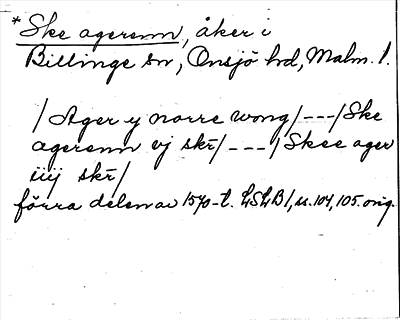 * Ske agerenn, åker i
Billinge sn, Onsjö hd, Malm. l.
/Ager y norre wong/---/Ske
agerenn vj skr/---/Skee ager
iiij skr/
förra delen av 1570-t. LSLB1, ss. 104, 105. orig.